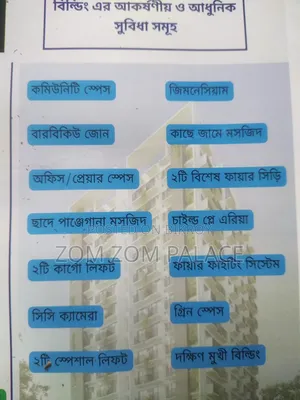 বিল্ডিং এর আকর্ষণীয় ও আধুনিক
সুবিধা সমূহ
কমিউনিটি স্পেস
জিমনেসিয়াম
বারবিকিউ জোন
কাছে জামে মসজিদ
অফিস/প্রেয়ার স্পেস
২টি বিশেষ ফায়ার সিড়ি
ছাদে পাঞ্জেগানা মসজিদ
চাইল্ড প্লে এরিয়া
ZOM ZOM PALACE
২টি কার্গো লিফট
ফায়ার ফাইটিং সিস্টেম
সিসি ক্যামেরা
গ্রিন স্পেস
২টি স্পেশাল লিফট
দক্ষিণ মুখী বিল্ডিং